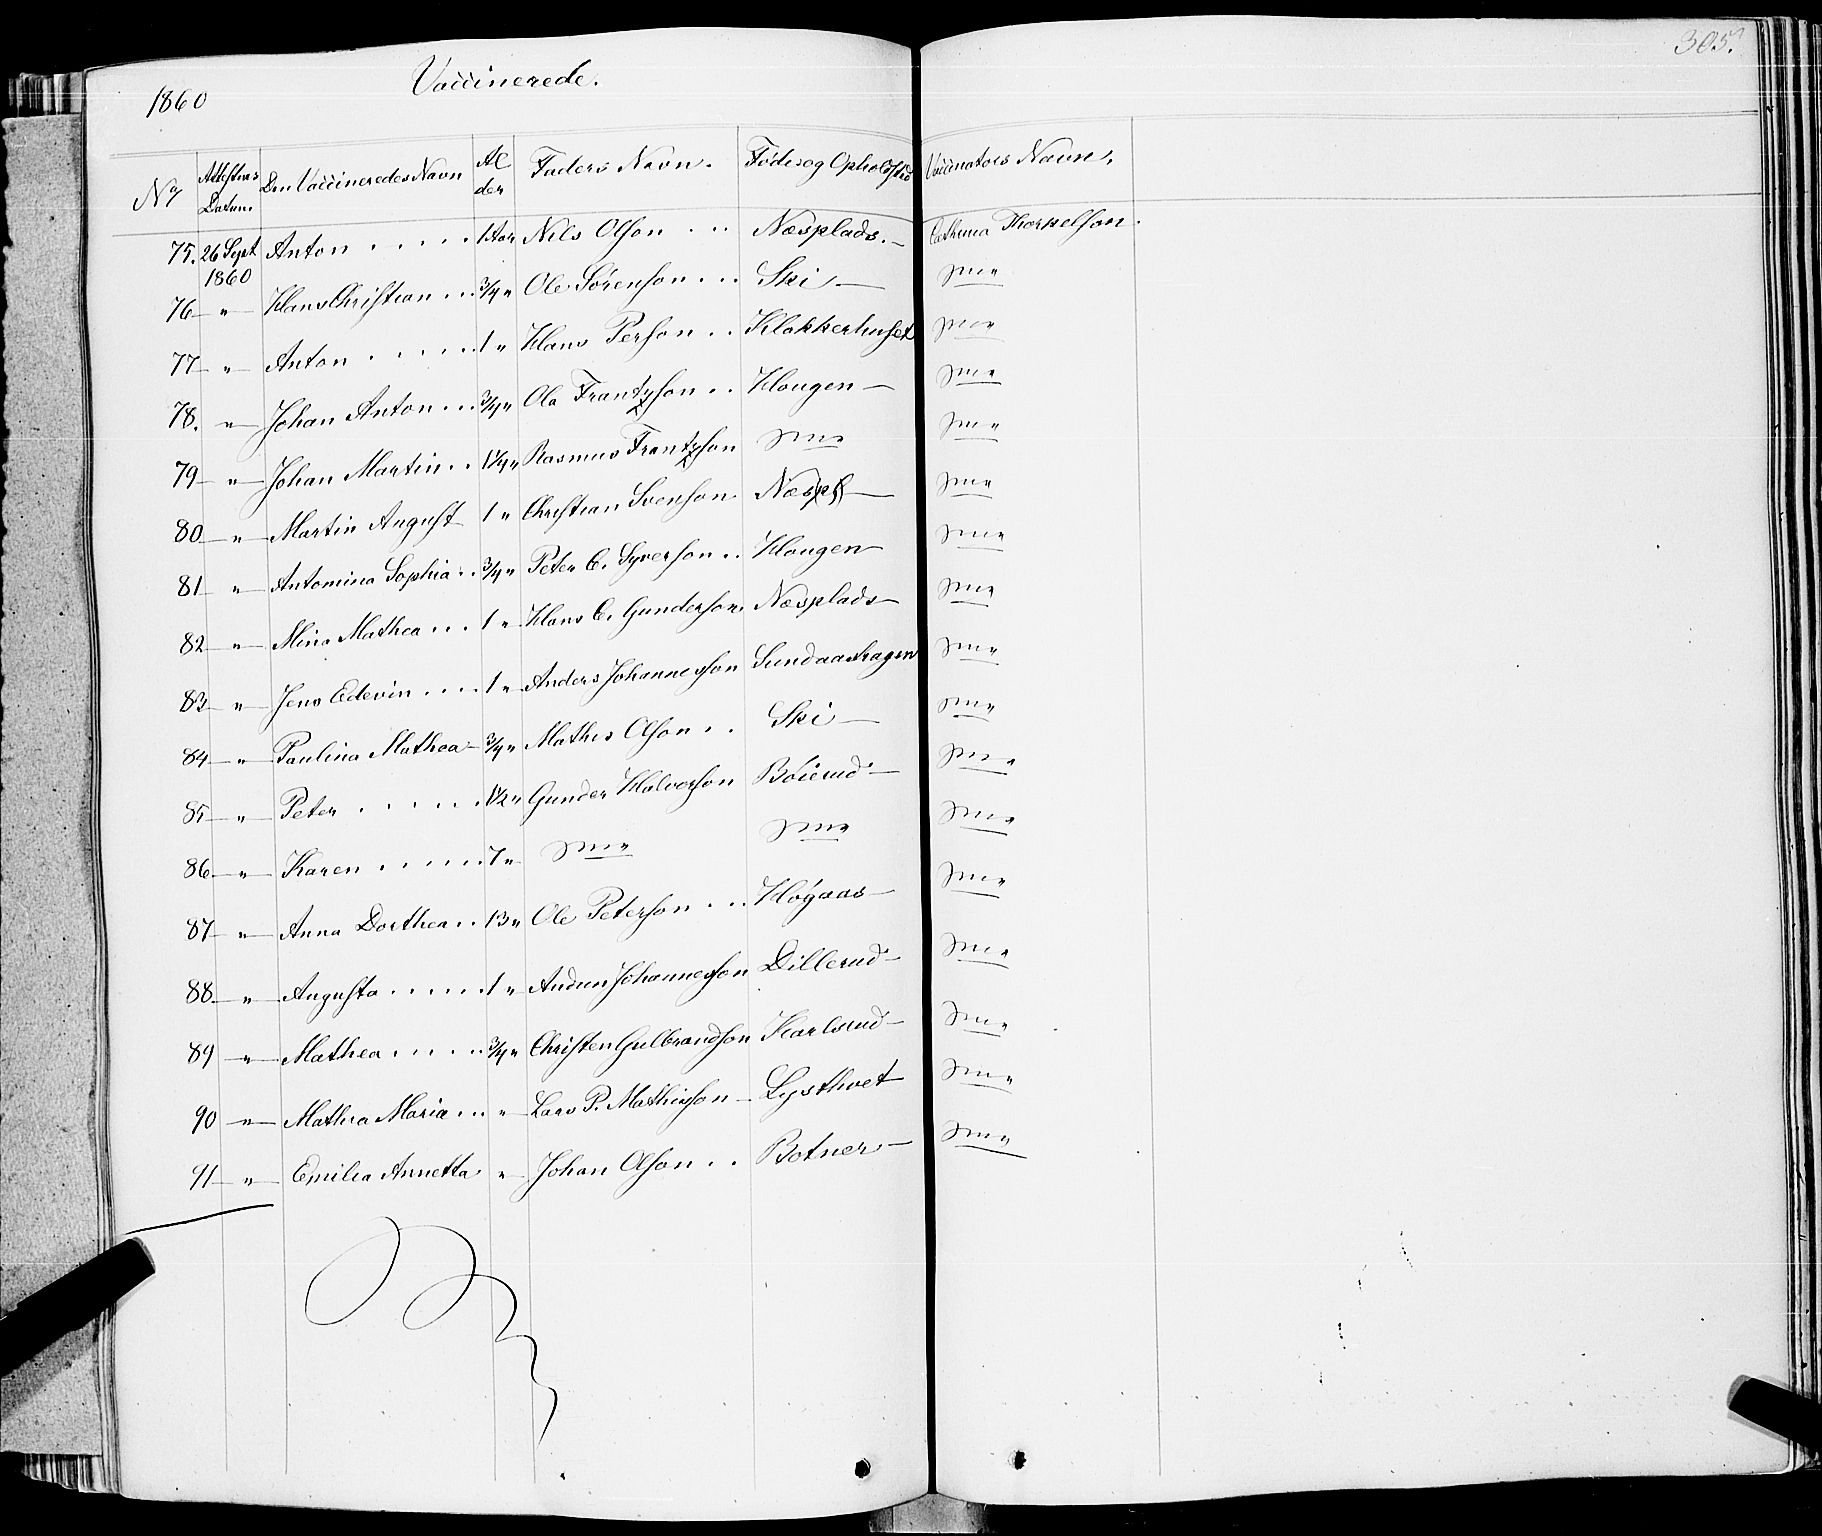 305.
1860 Vaccinerede.
No Attestens Datum. Den Vaccineredes Navn Alder Faders Navn. Føde og Opholdssted Vaccinators Navn.
75. 26 Sept 1860 Anton . . . . . 1 Aar Nils Olson . . . Næsplads. — Cathrina Thorkelson.
76 — " — Hans Christian . . . 3/4 " Ole Sørenson . . . Ski —
77 — " — Anton . . . . . 1 " Hans Person . . Klokkerhuset
78. " — Johan Anton . . . 3/4 " Ole Frantzson . . Hougen —
79 — " — Johan Martin . . 1 1/4 " Rasmus Frantzson
80 — " — Martin August 1 " Christian Svenson Næspl —
81 " — Antomina Sophia . . 3/4 " Peter C. Syverson . . Hougen —
82 — " — Mina Mathea . . . 1 " Hans C. Gunderson. Næsplads —
83 — " — Jens Edevin . . . . 1 " Anders Johannesson Sundaashagen
84 — " — Paulina Mathea — 3/4 " Mathis Olson . . Ski —
85 — " — Peter . . . . . . 1 1/2 " Gunder Halverson Böierud —
86 — " — Karen . . . . . . 7 "
87 — " — Anna Dorthea . . 13 " Ole Peterson . . . Høgaas —
88 — " — Augusta . . . . . 1 " Audun Johannesson Dillerud —
89 — " — Mathea . . . . . 3/4 " Christen Gulbrandson Karlsrud —
90 — " — Mathea Maria . . . " — Lars P. Mathisson — Lysthvet
91 — " — Emilia Annetta " — Johan Olson . . Botner —